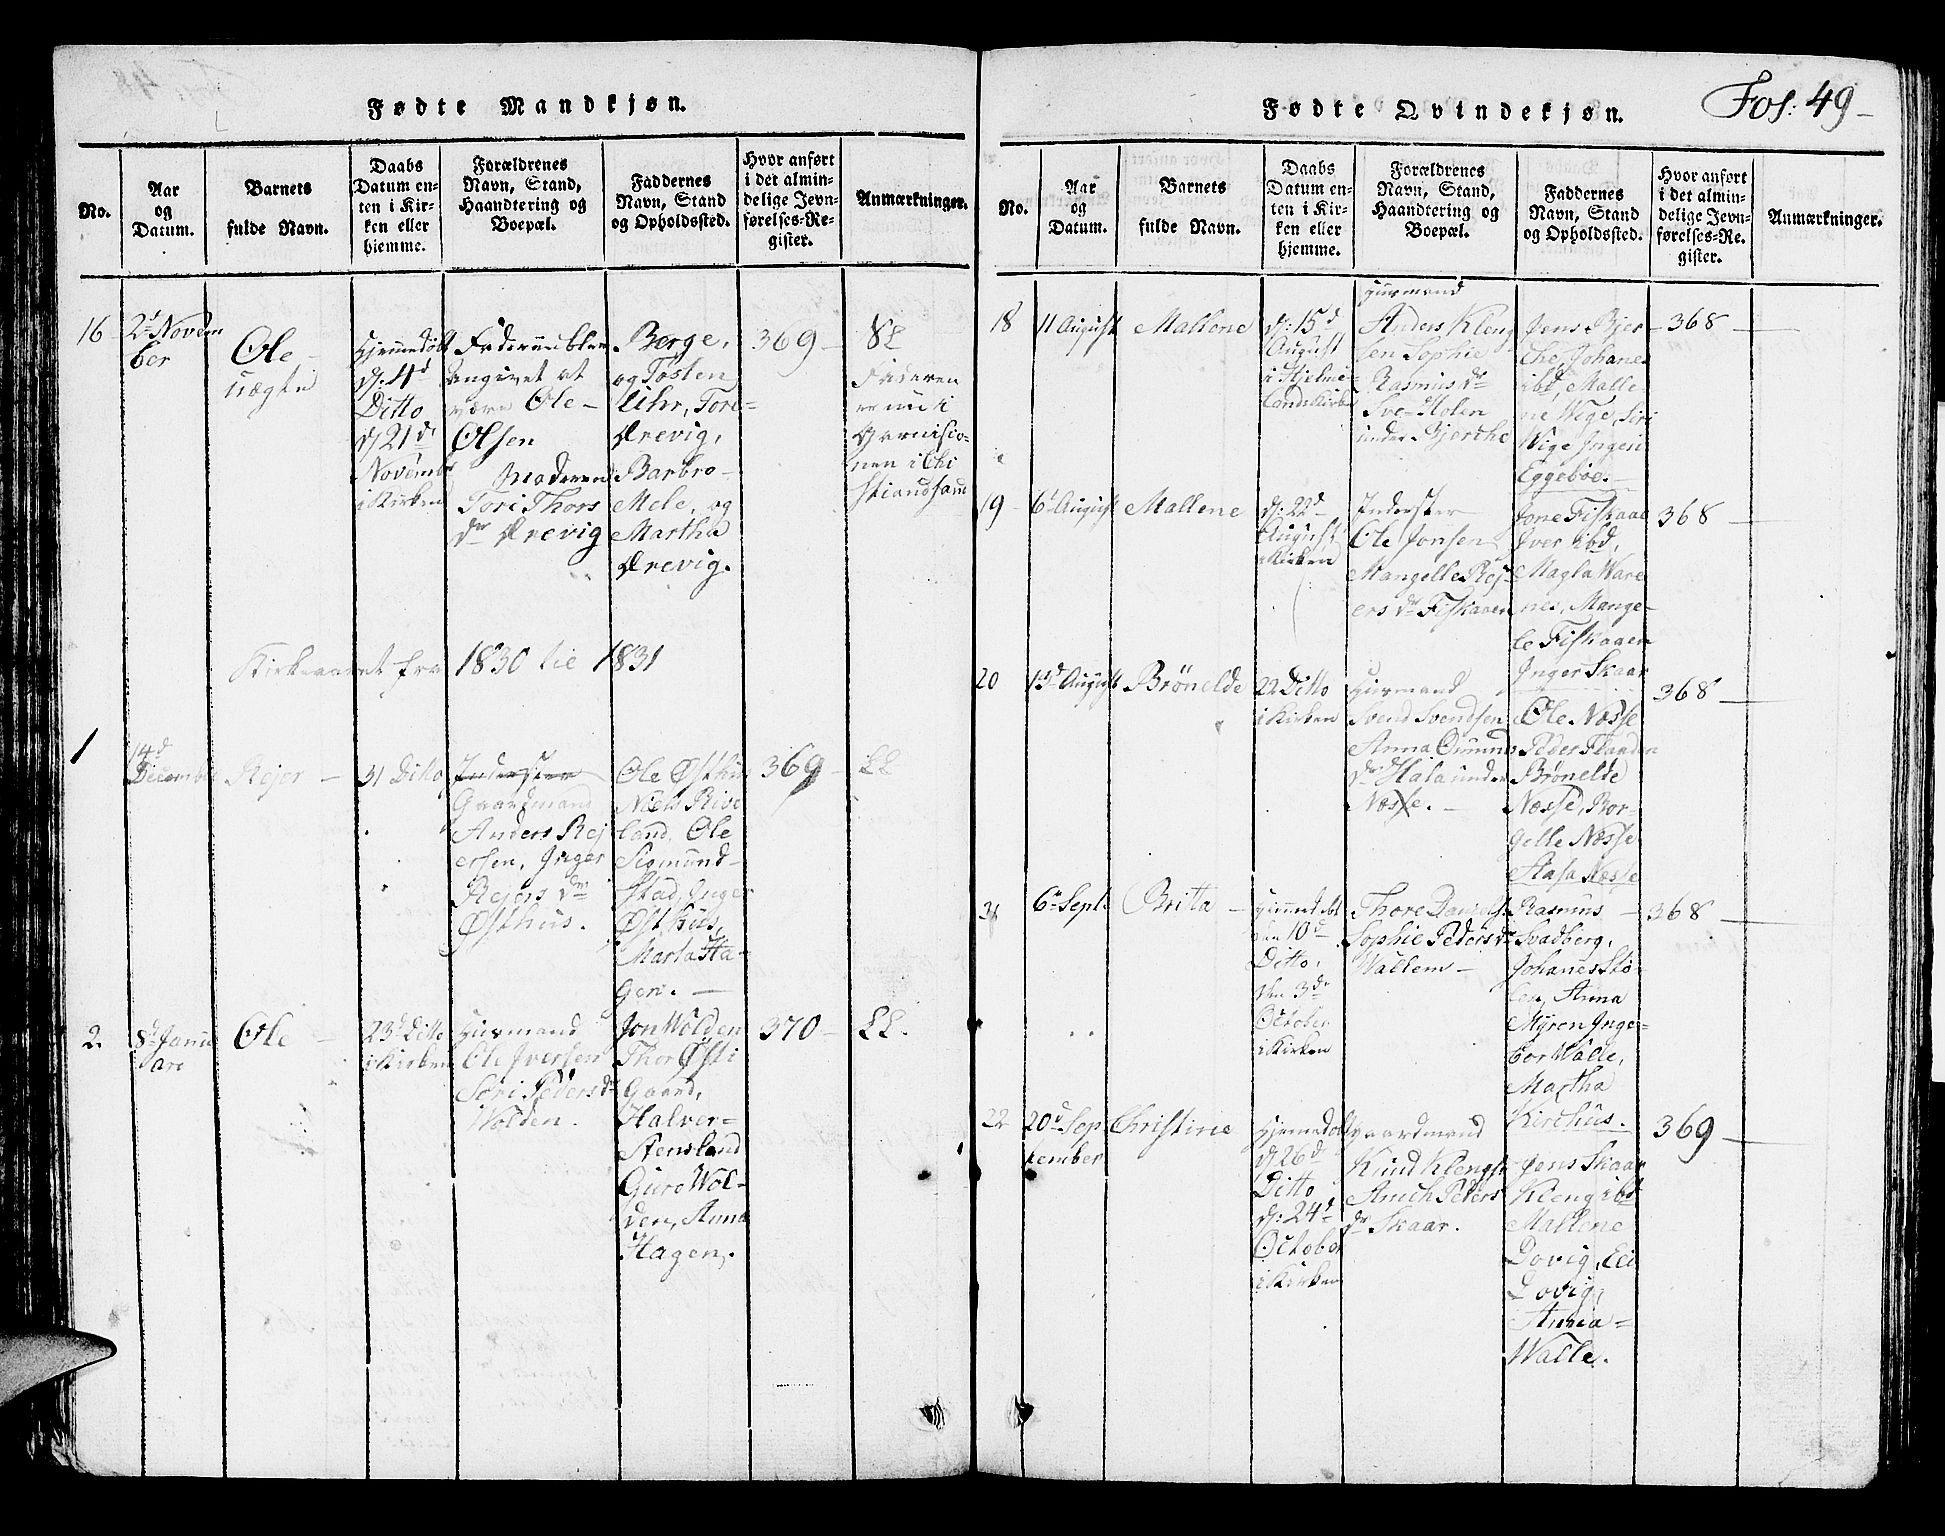 Fødte Mandkjøn.
No.
Aar
og
Datum.
Barnets
fulde Navn.
Daabs
Datum en-
ten i Kir-
ken eller
hjemme.
Forældrenes
Navn, Stand,
Haandtering og
Boepæl.
Faddernes
Navn, Stand
og Opholdssted.
Hvor anført
i det almin-
delige Jevn-
førelses-Re-
gister.
Anmærkninger.
16
2d Novem
ber
Ole
uægte
Hjemmedøbt
d: 4d
Ditto
d 21d
Novemb
i Kirken
Faderen blev
angivet at
være Ole
Olsen
Moderen
Tori Thors
dr Drevig
Berge,
og Tosten
Uhr, Tore
Drevig,
Barbro
Mele, og
Martha
Drevig.
369
Faderen
er nu i
Garnisio-
nen i Chri
stiandsand
Kirkeaaret fra 1830 til 1831
1
14d
December
Rejer
31 Ditto
Inderster
Gaardmand
Anders Rej
ersen, Inger
Rejers dr
Østhus.
Ole Østhus
Niels Rive
land, Ole
Sigmund-
stad, Inger
Østhus,
Marta Ha-
gen.
369
LL
2.
8d Janu
ari
Ole
23d Ditto
i Kirken
Huusmand
Ole Iversen
Søri Peders dr
Wolden.
Jon Wolden
Thor Østi
Gaard,
Halver
Stensland
Guro Wol-
den, Anna
Hagen.
370
LL.
Fødte Qvindekjøn.
Fol: 49
No.
Aar
og
Datum.
Barnets
fulde Navn.
Daabs
Datum en-
ten i Kir-
ken eller
hjemme.
Forældrenes
Navn, Stand,
Haandtering og
Boepæl.
Faddernes
Navn, Stand
og Opholdssted.
Hvor anført
i det almin-
delige Jevn-
førelses-Re-
gister.
Anmærkninger.
18
11 August
Mallene
d: 15d
August
i Hjelme-
landskirke
Huusmand
Anders Kleng
sen Sophie
Rasmus dr
Sve-Holen
under Bjerche
Jens Bjer
che, Johane
ibd, Malle
ne Wige, Siri
Wige Ingeri
Eggeboe.
368
19
6d August
Mallene
d: 22d
August
i Kirken
Inderster
Ole Jonsen
Mangelle Rej
ers dr Fiskaaen
Jone Fiskaae
Iver ibd,
Magla Ware
nes, Mange-
le Fiskaaen
Inger Skaar
368
20
13d August
Brönelde
22 Ditto
i Kirken
Huusmand
Svend Svendsen
Anna Omuns
dr Hala under
Næsse.
Ole Næsse
Peder Flaaden
Brönelde
Næsse, Bor-
gelle Næsse
Stasa Næsse
368
6d Septe
Britta
Hiemmedøbt
den 10d
Ditto,
den 3d
October
i Kirken
Thore Daniels.
Sophie Peders dr
Wallem
Rasmus
Svadberg,
Johanes Stø-
len, Anna
Myren Inge-
bor Walle,
Martha
Kirchus.
368
22
20d Sep
tember
Christine
Hjemmedøbt
d 26d
Ditto
d: 24d
October
i Kirken
Gaardmand
Knud Klengs
Anich Peders
dr Skaar.
Jens Skaar
Kleng ibd
Mallene
Dovig, Eli
Dovig,
Anna
Walle.
369